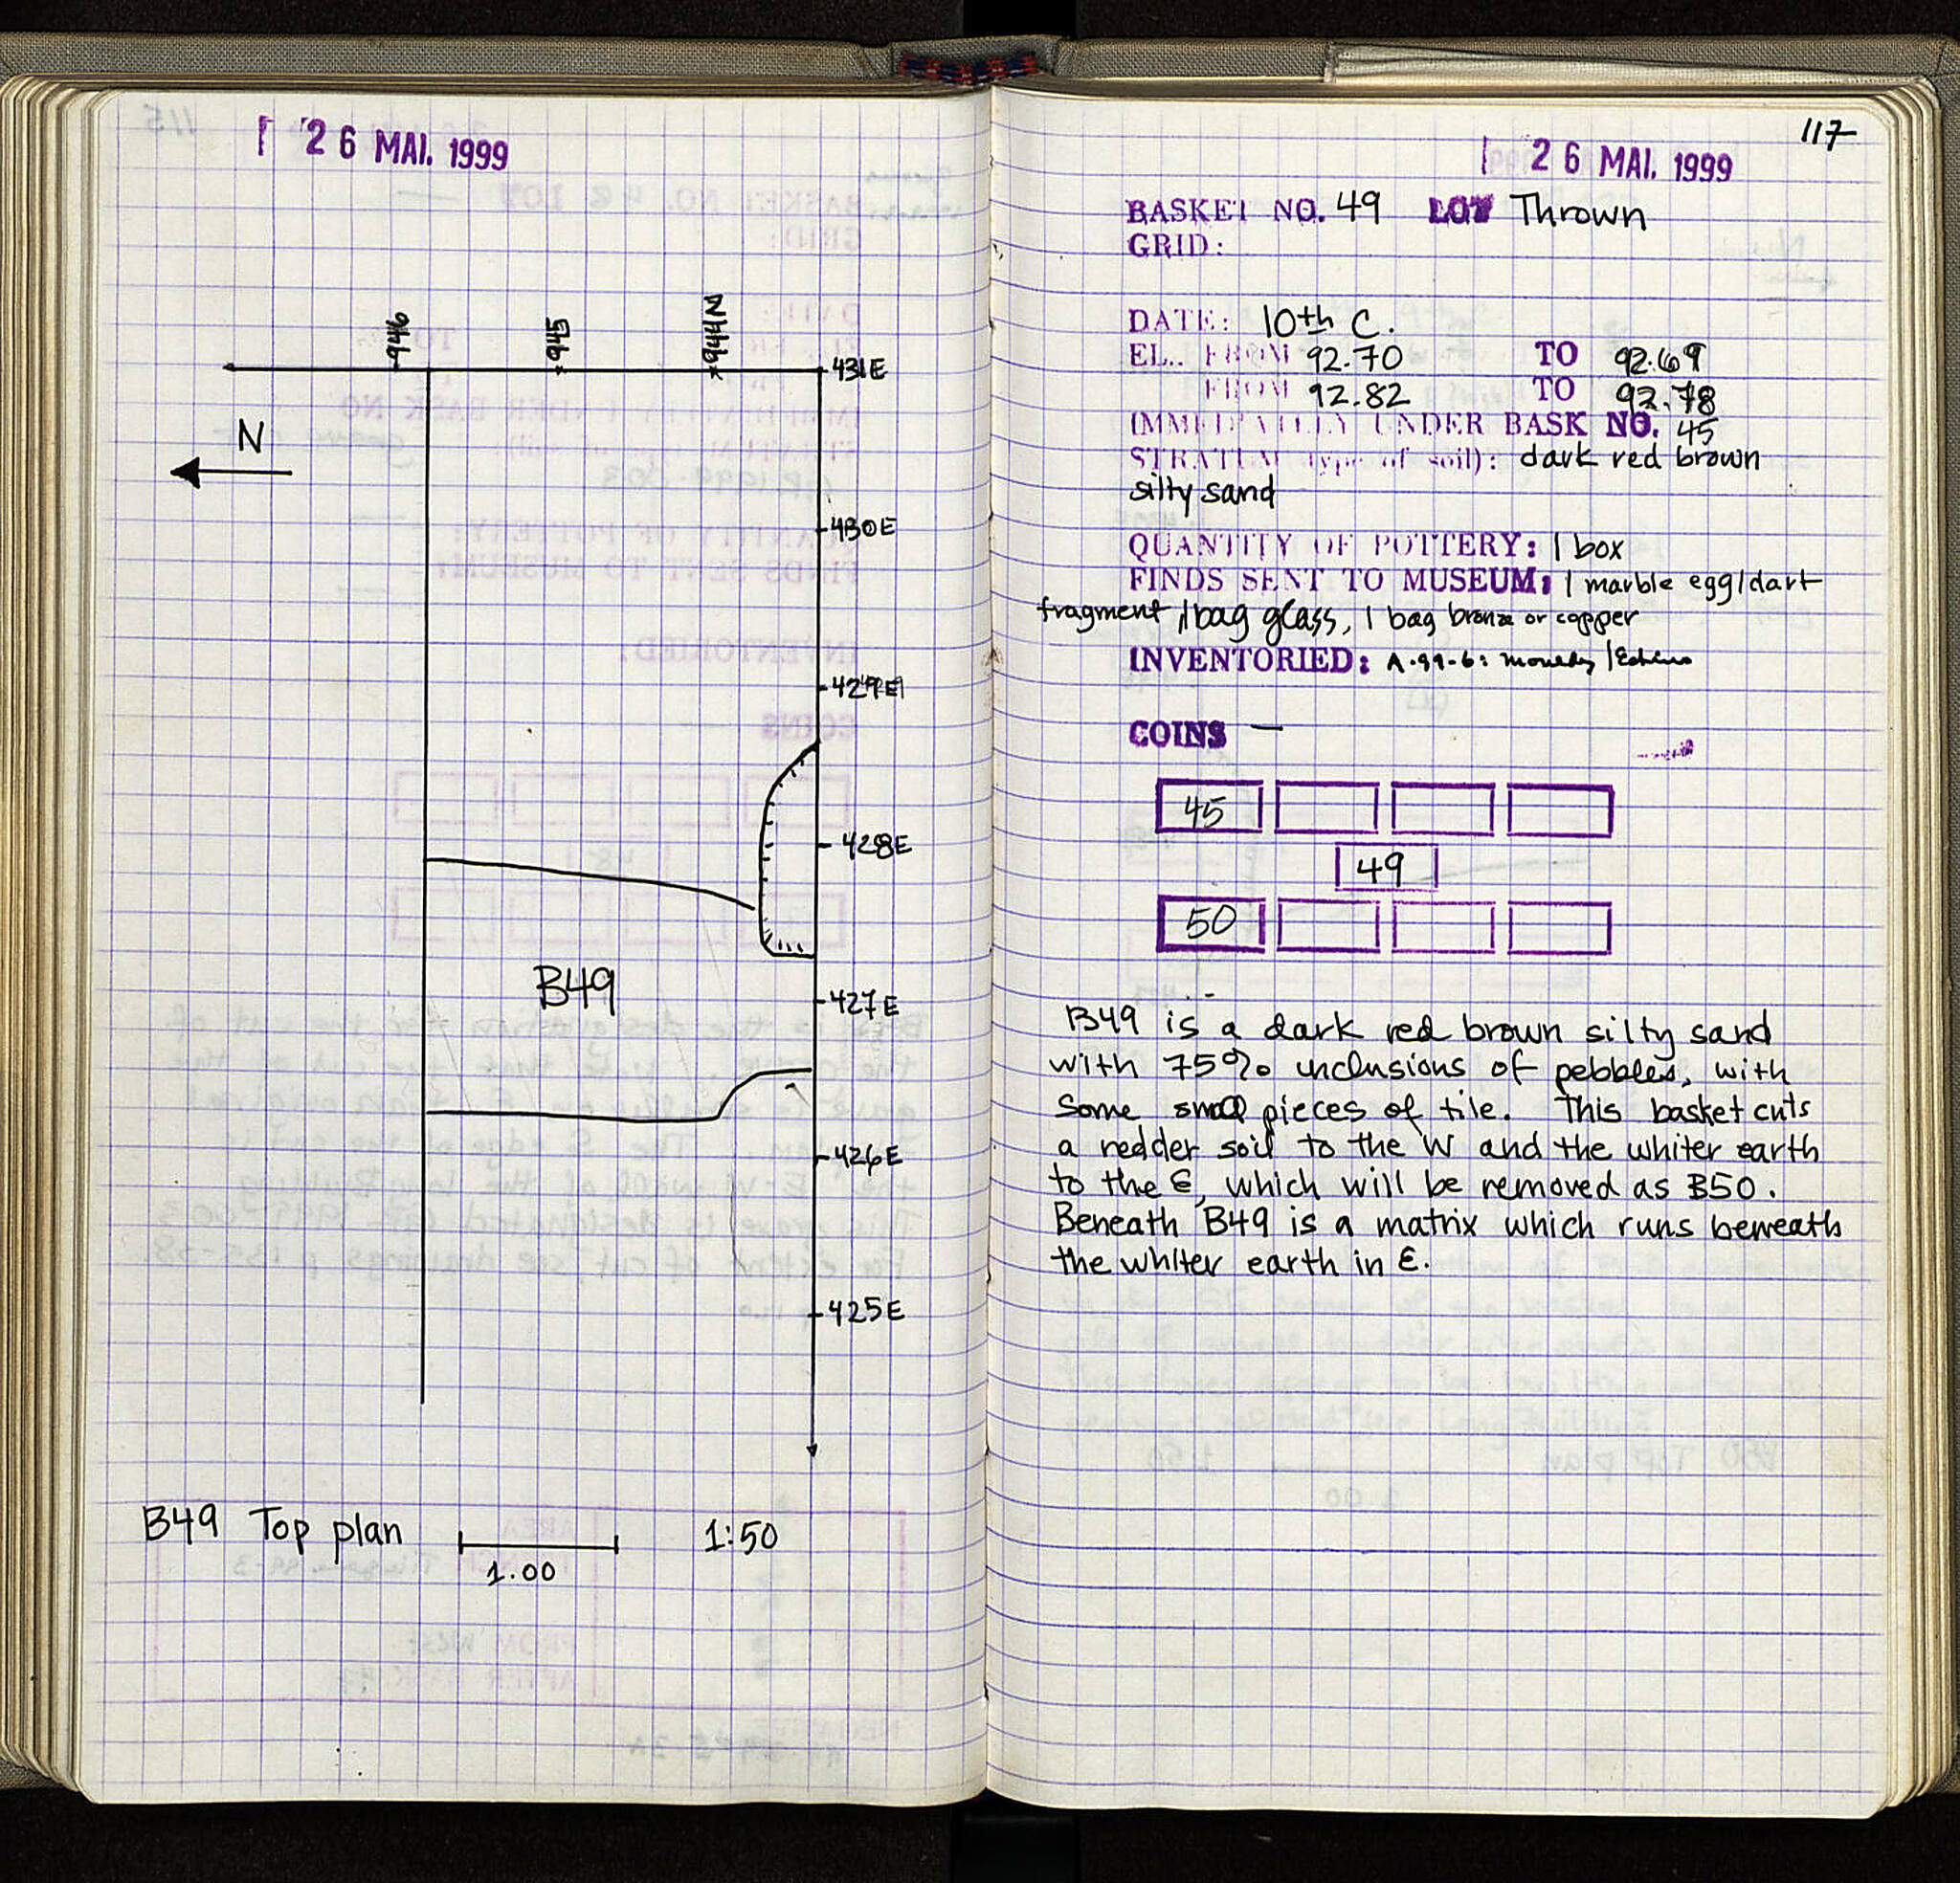 26 MAI. 1999
946
945
944N
431E
N
430E
429E
428E
B49
427E
426E
425E
B49 Top plan
1:50
1.00
117
26 MAI. 1999
BASKET NO. 49 LOT Thrown
GRID:
DATE: 10th C.
EL. FROM 92.70 TO 92.69
FROM 92.82 TO 92.78
IMMEDIATELY UNDER BASK NO. 45
STRATUM (type of soil): dark red brown
silty sand
QUANTITY OF POTTERY: 1 box
FINDS SENT TO MUSEUM: 1 marble egg/dart
fragment, 1 bag glass, 1 bag bronze or copper
INVENTORIED: A-99-6:
COINS —
45
49
50
B49 is a dark red brown silty sand
with 75% inclusions of pebbles, with
some small pieces of tile. This basket cuts
a redder soil to the W and the whiter earth
to the E, which will be removed as B50.
Beneath B49 is a matrix which runs beneath
the whiter earth in E.